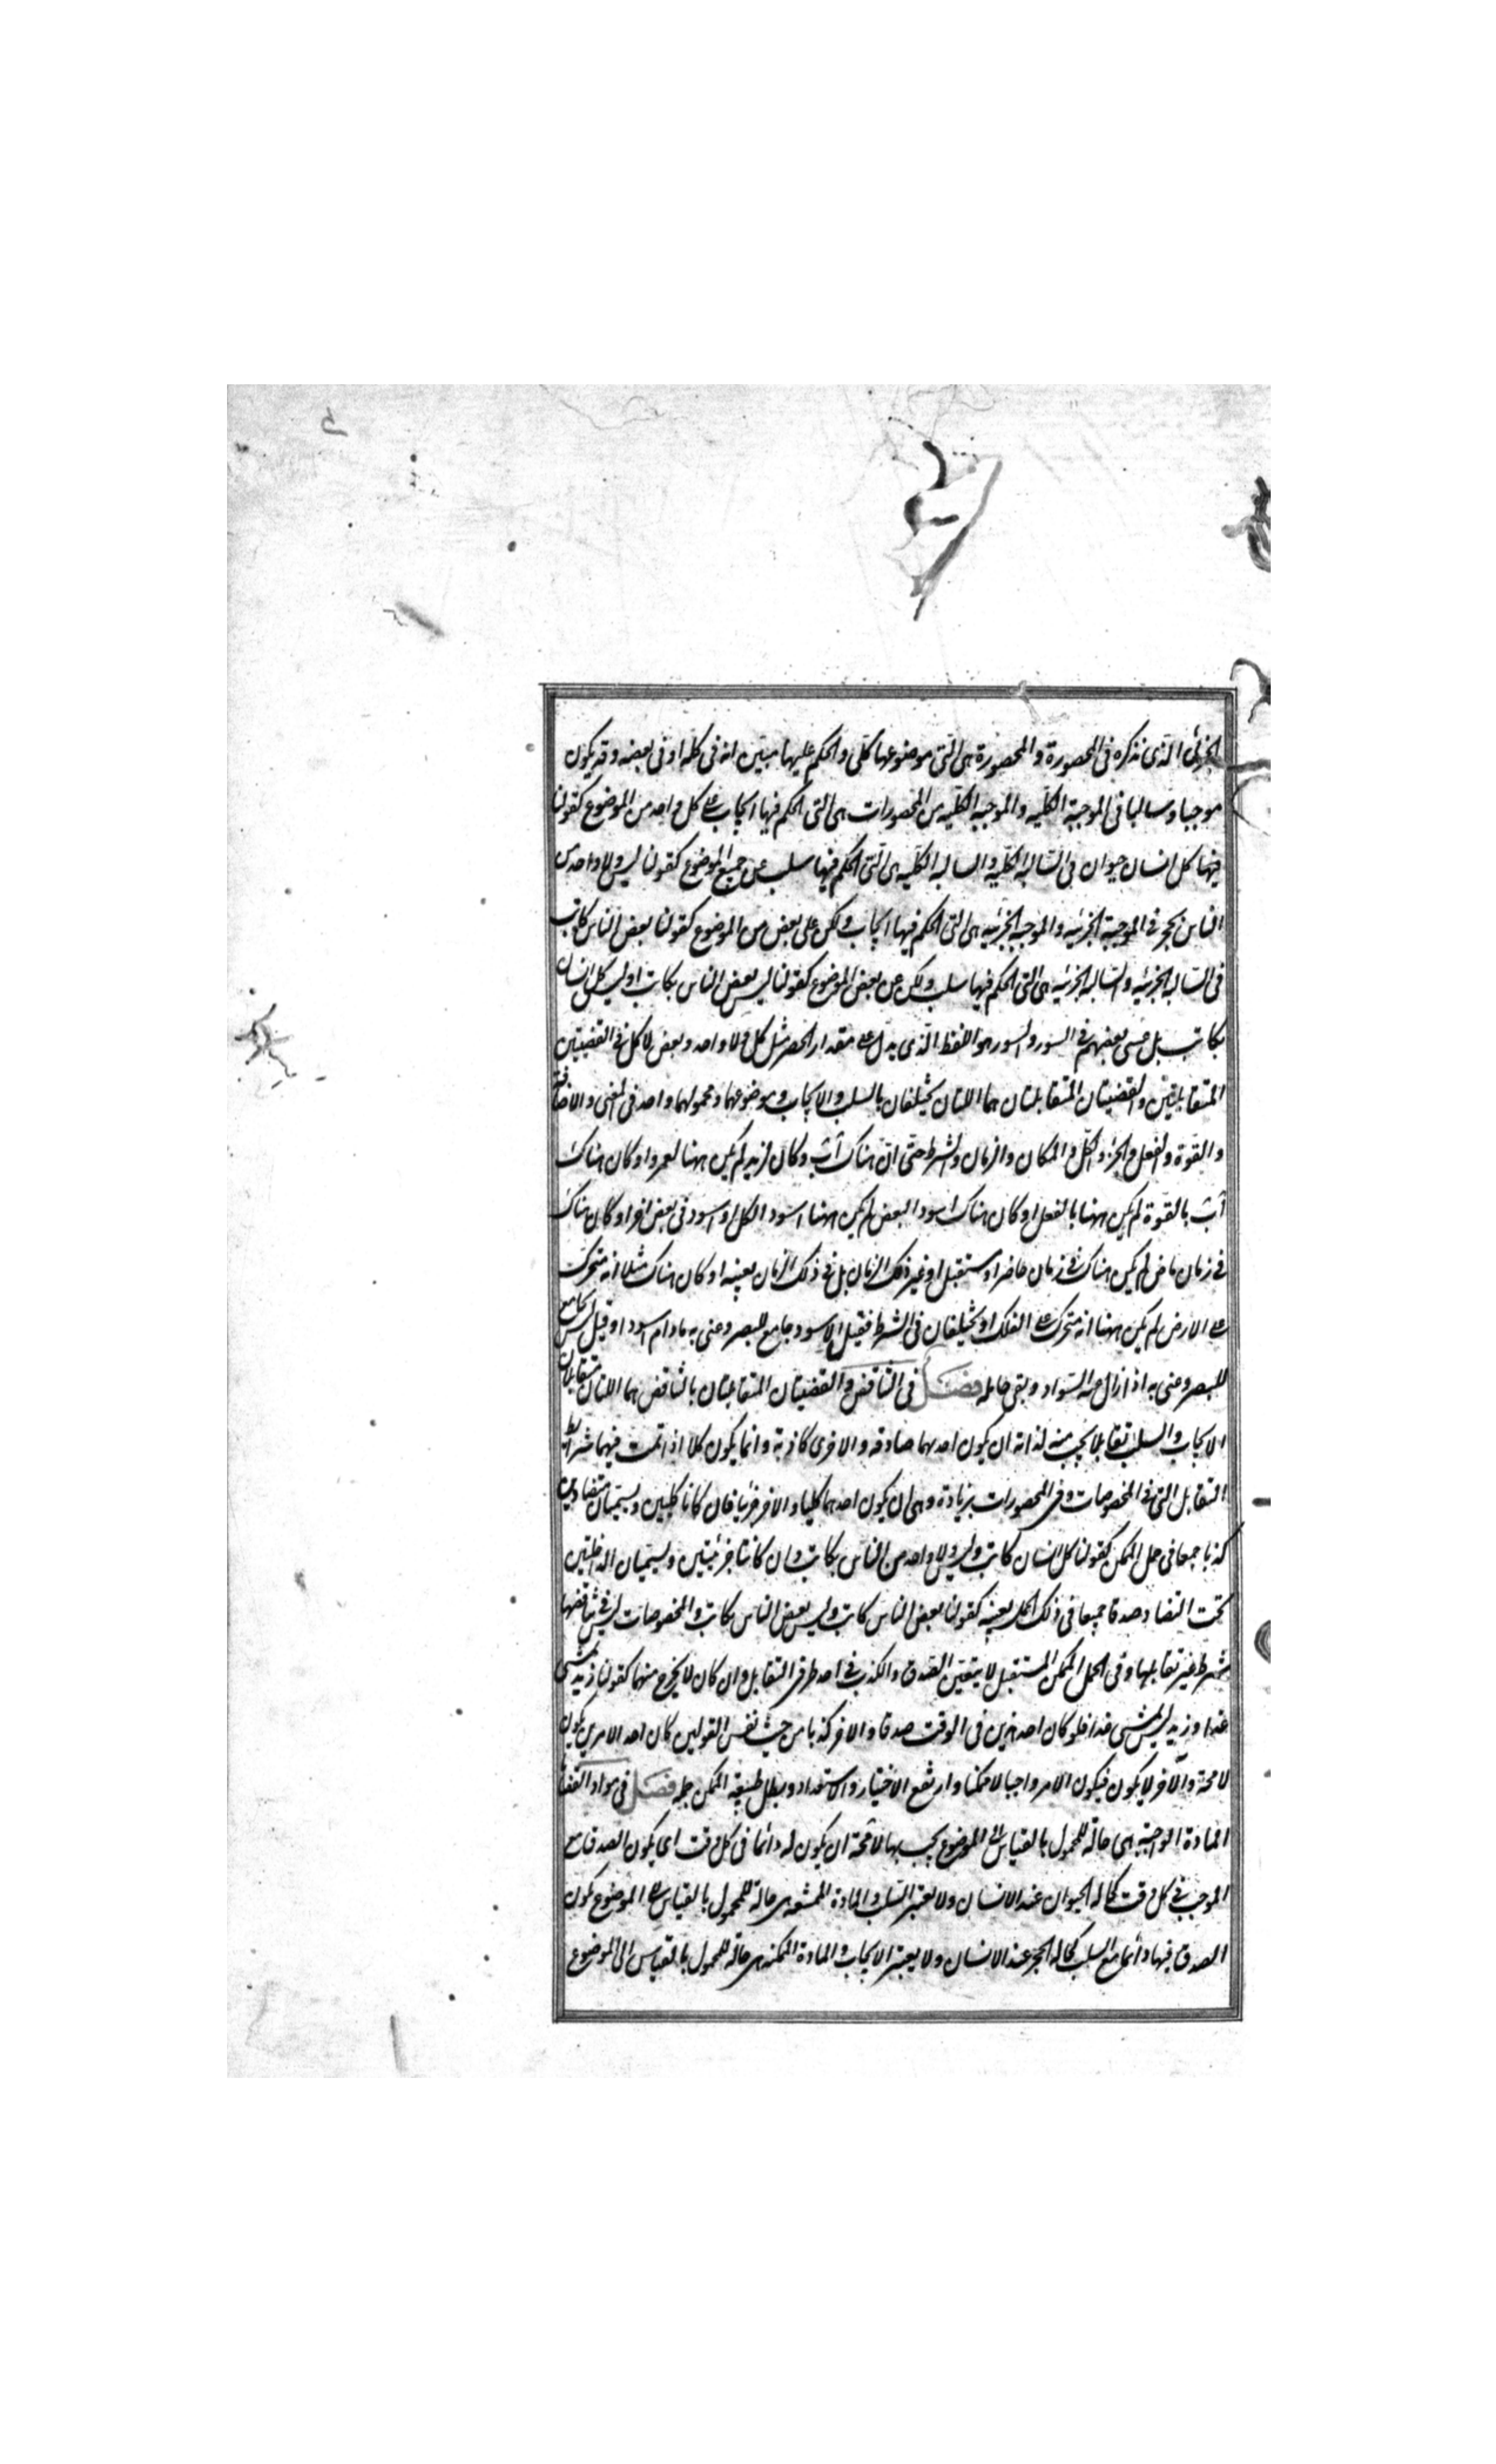 الجزئى الذى نذكره فى المحصورة والمحصورة هى التى موضوعها كلى والحكم عليها مبين انه فى كله او فى بعضه وقد يكون
موجبا وسالبا فى الموجبة الكلية والموجبة الكلية من المحصورات هى التى الحكم فيها ايجاب على كل واحد من الموضوع كقولنا
فيها كل انسان حيوان فى السالبة الكلية والسالبة الكلية هى التى الحكم فيها سلب عن جميع الموضوع كقولنا ليس ولا واحد من
الناس بحجر فى الموجبة الجزئية والموجبة الجزئية هى التى الحكم فيها ايجاب ولكن على بعض من الموضوع كقولنا بعض الناس كاتب
فى السالبة الجزئية والسالبة الجزئية هى التى الحكم فيها سلب ولكن عن بعض الموضوع كقولنا ليس بعض الناس بكاتب او ليس كل انسان
بكاتب بل عسى بعضهم فى السور والسور هو اللفظ الذى يدل على مقدار الحصر مثل كل ولا واحد وبعض ولا كل فى القضيتين
المتقابلتين والقضيتان المتقابلتان هما اللتان يختلفان بالسلب والايجاب وموضوعهما ومحمولهما واحد فى المعنى والاضافة
والقوة والفعل والجزء والكل والمكان والزمان والشرط حتى ان هناك اب وكان لزيد لم يكن ههنا لعمرو او كان هناك
اب بالقوة لم يكن ههنا بالفعل او كان هناك اسود البعض لم يكن ههنا اسود الكل او اسود فى بعض اخر او كان هناك
فى زمان ماض لم يكن هناك فى زمان حاضر او مستقبل او غير ذلك الزمان بل فى ذلك الزمان بعينه او كان هناك مثلا انه متحرك
على الارض لم يكن ههنا انه متحرك على الفلك او يختلفان فى الشرط فقيل الاسود جامع للبصر وعنى به مادام اسود او قيل ليس بجامع
للبصر وعنى به اذا زال عنه السواد وبقى حامله فصل فى التناقض والقضيتان المتقابلتان بالتناقض هما اللتان متقابلان
الايجاب والسلب تقابلا يجب منه لذاته ان يكون احدهما صادقه والاخرى كاذبة وانما يكون كلا اذا تمت فيهما شرائط
التقابل التى فى المخصوصات وفى المحصورات بزيادة وهى ان يكون احدهما كليا والاخر جزئيا فان كانا كليين ويسميان متضادين
كذبا جميعا فى حمل الممكن كقولنا كل انسان كاتب وليس ولا واحد من الناس بكاتب وان كانتا جزئيتين ويسميان الداخلتين
تحت التضاد صدقا جميعا فى ذلك الحمل بعينه كقولنا بعض الناس كاتب وليس بعض الناس بكاتب والمخصوصات ليس فى تناقضها
شرط غير تقابلها وفى الحمل الممكن المستقبل لا يتعين الصدق والكذب فى احد طرفى التقابل وان كان لا يخرج منهما كقولنا زيد يمشى
غدا وزيد ليس يمشى غدا فلو كان احد هذين فى الوقت صدقا والاخر كذبا من حيث نفس القولين كان احد الامرين يكون
لا محالة والآخر لا يكون فيكون الامر واجبا لا ممكنا وارتفع الاختيار والاستعداد وبطل طبيعة الممكن جملة فصل فى مواد القضايا
المادة الواجبة هى حالة للمحمول بالقياس الى الموضوع يجب بها لا محالة ان يكون له دائما فى كل وقت اى يكون الصدق مع
الموجب فى كل وقت كحالة الحيوان عند الانسان ولا يعتبر السلب والمادة الممتنعه هى حالة للمحمول بالقياس الى الموضوع يكون
الصدق فيها دائما مع السلب كحالة الحجر عند الانسان ولا يعتبر الايجاب والمادة الممكنة هى حالة للمحمول بالقياس الى الموضوع